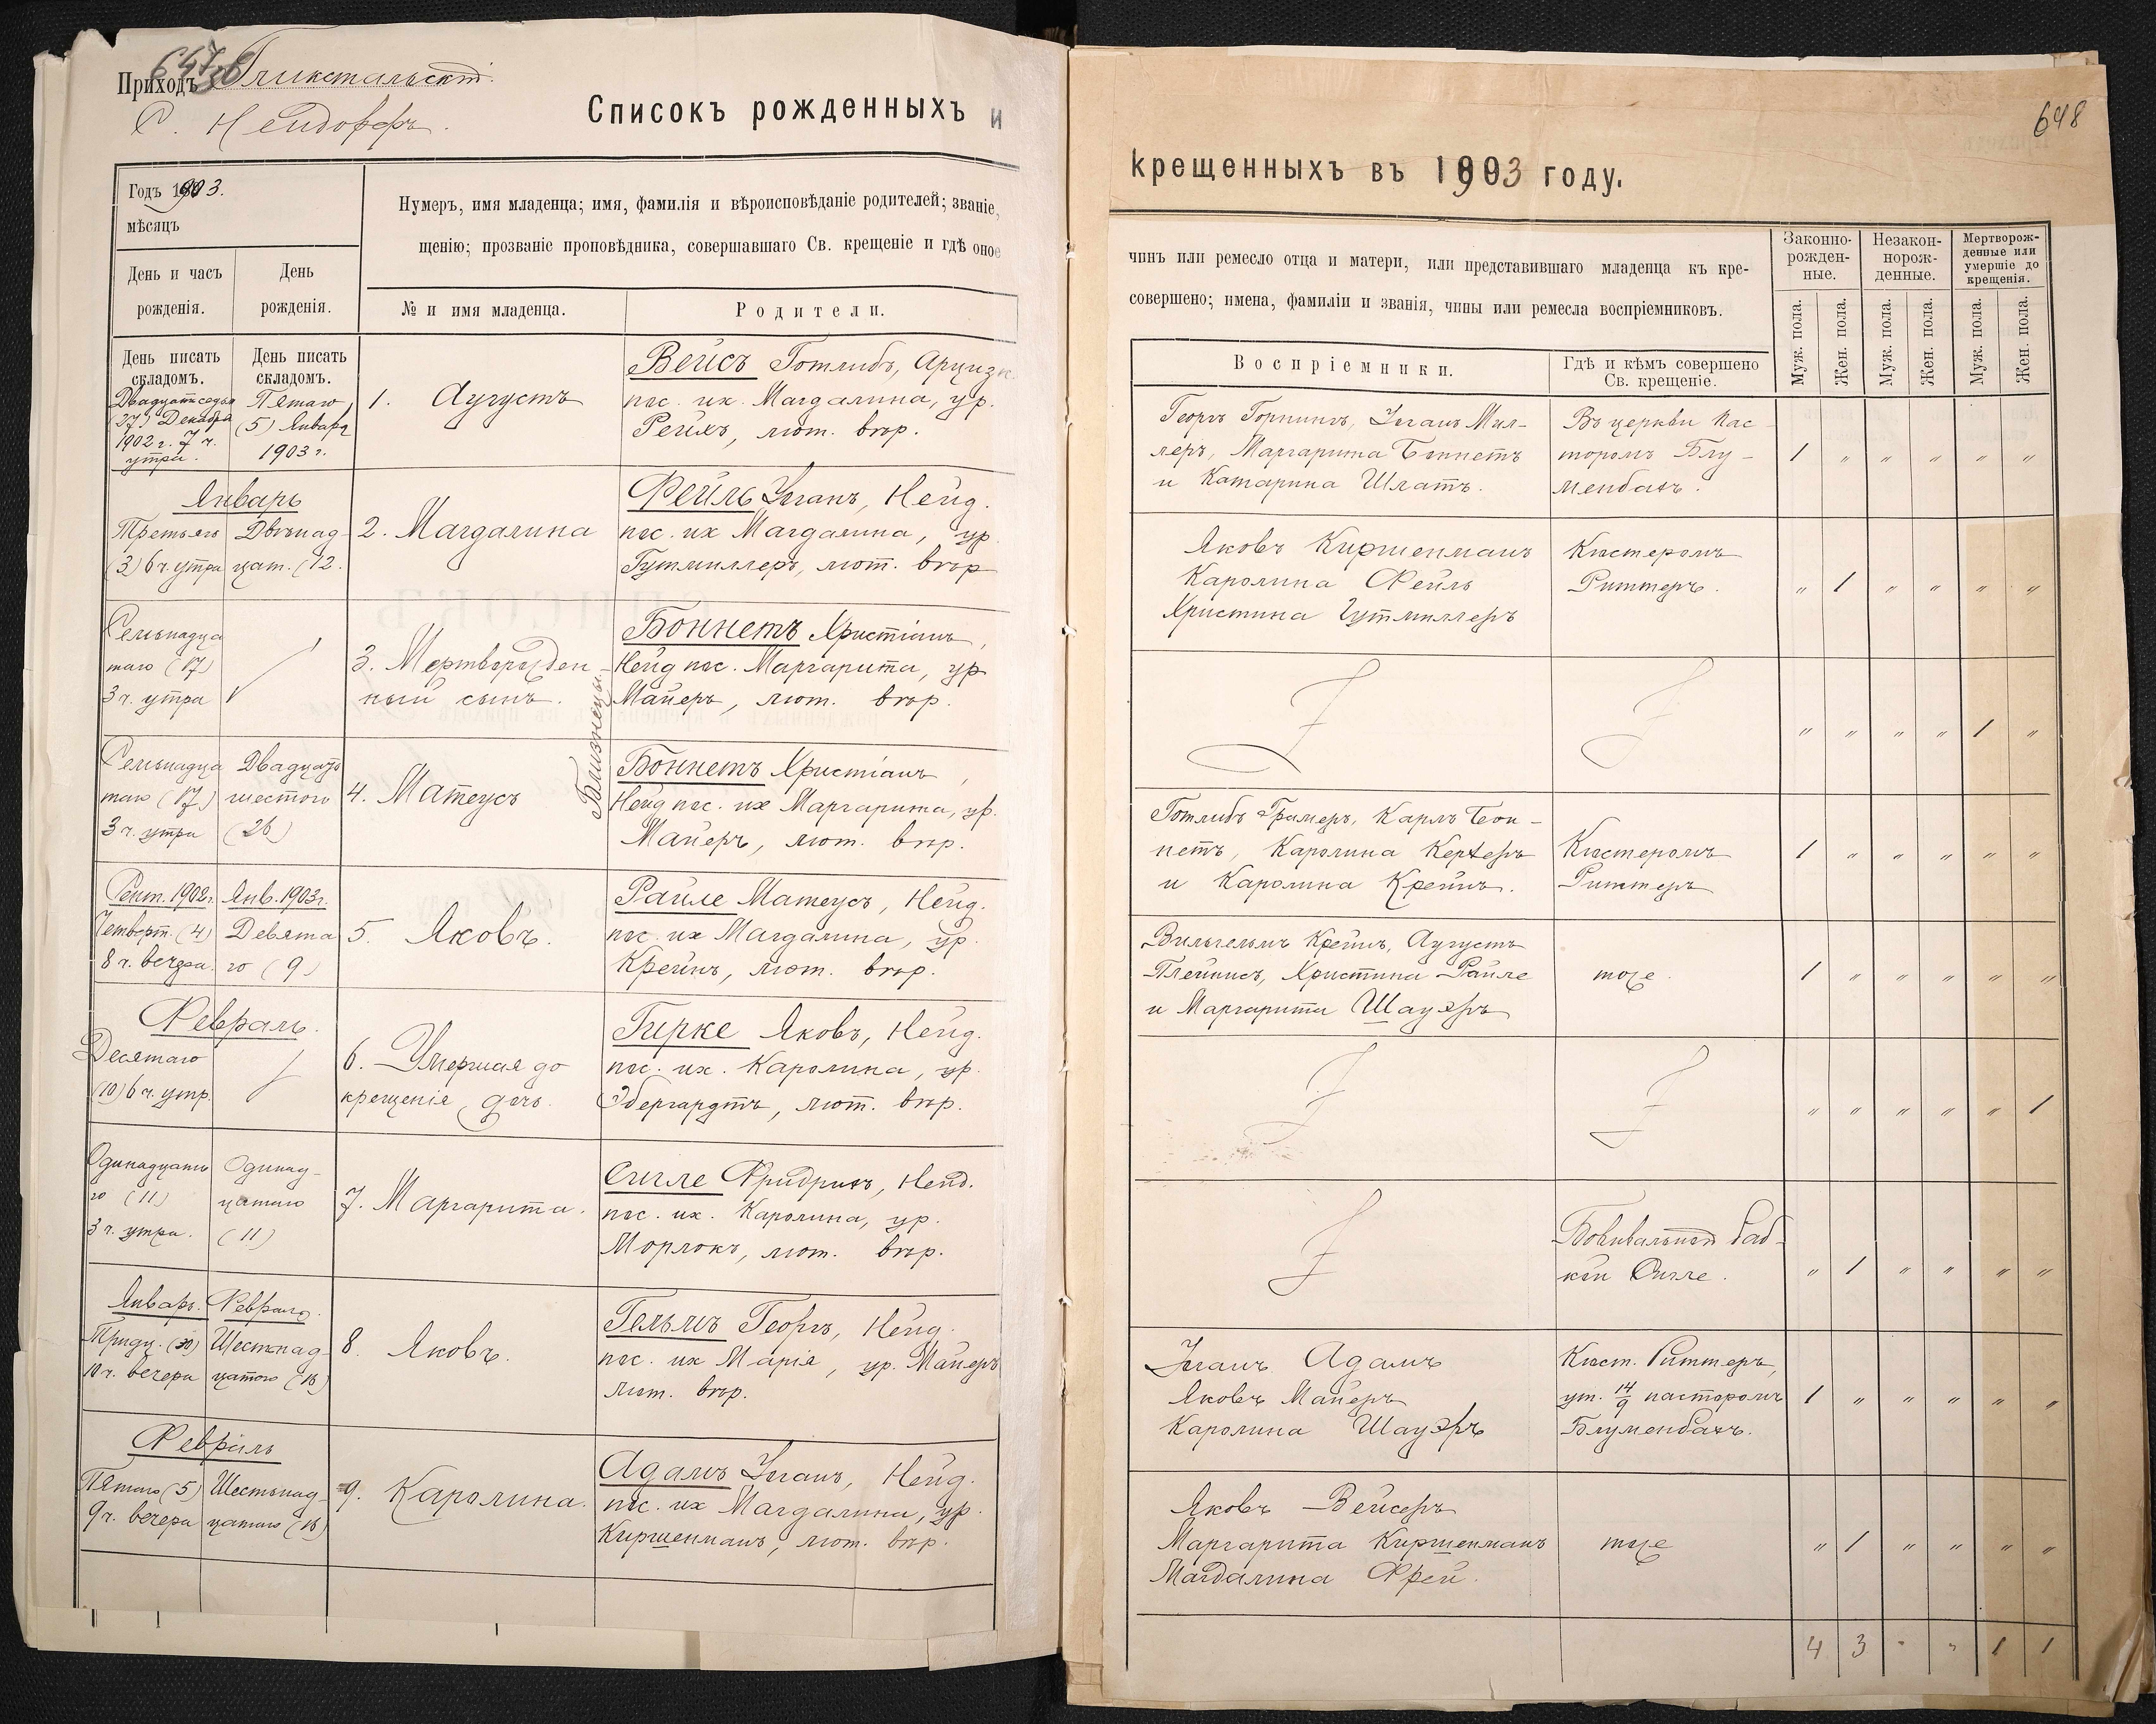 647
Приходъ Глюкстальскій.
С. Нейдорфъ.
Списокъ рожденныхъ и
Годъ 1903.
мѣсяцъ
Нумеръ, имя младенца; имя, фамилія и вѣроисповѣданіе родителей; званіе,
щенію; прозваніе проповѣдника, совершавшаго Св. крещеніе и гдѣ оное
День и часъ
рожденія.
День
рожденія.
№ и имя младенца.
Родители.
День писать
складомъ.
День писать
складомъ.
Двадцатседьм
(27) Декабря
1902 г. 7 ч.
утра.
Пятаго
(5) Января
1903 г.
1. Августъ
Вейсъ Готлибъ, Арцизк.
пос. их. Магдалина, ур.
Рейхъ, лют. вѣр.
Январь
Третьяго
(3) 6 ч. утра
Двѣнад-
цат. (12.
2. Магдалина
Фейль Іоганъ, Нейд.
пос. их Магдалина, ур.
Гутмиллеръ, лют. вѣр
Семьнадца
таго (17)
3 ч. утра
3. Мертворожден-
ный сынъ.
Близнецы.
Боннетъ Христіанъ,
Нейд пос. Маргарита, ур
Майеръ, лют. вѣр.
Семьнадца
таго (17)
3 ч. утра
Двадцать
шестого
(26)
4. Матеусъ
Боннетъ Христіанъ,
Нейд пос. их Маргарита, ур.
Майеръ, лют. вѣр.
Сент. 1902 г.
Четверт. (4)
8 ч. вечера.
Янв. 1903 г.
Девята
го (9)
5. Яковъ.
Райле Матеусъ, Нейд.
пос. их Магдалина, ур.
Крейнъ, лют. вѣр.
Февраль.
Десятаго
(10) 6 ч. утр.
6. Умершая до
крещенія дочь.
Гирке Яковъ, Нейд.
пос. их. Каролина, ур.
Эбергардтъ, лют. вѣр.
Одинадцата
го (11)
3 ч. утра.
Одинад-
цатаго
(11)
7. Маргарита.
Сигле Фридрихъ, Нейд.
пос. их. Каролина, ур.
Морлокъ, лют. вѣр.
Январь.
Тридц. (30)
10 ч. вечера
Февраль.
Шестнад-
цатого (16)
8. Яковъ.
Гельмъ Георгъ, Нейд.
пос. их Марія, ур. Майеръ
лют. вѣр.
Февраль
Пятаго (5)
9 ч. вечера
Шестьнад-
цатаго (16)
9. Каролина.
Адамъ Іоганъ, Нейд.
пос. их Магдалина, ур.
Киршенманъ, лют. вѣр.
648
крещенныхъ въ 1903 году.
чинъ или ремесло отца и матери, или представившаго младенца къ кре-
совершено; имена, фамиліи и званія, чины или ремесла воспріемниковъ.
Воспріемники.
Гдѣ и кѣмъ совершено
Св. крещеніе.
Законно-
рожден-
ные.
Незакон-
норож-
денные.
Мертворож-
денные или
умершіе до
крещенія.
Муж. пола.
Жен. пола.
Муж. пола.
Жен. пола.
Муж. пола.
Жен. пола.
Георгъ Горнингъ, Іоганъ Мил-
леръ, Маргарита Боннетъ
и Катарина Шлатъ.
Въ церкви пас-
торомъ Блу-
менбахъ.
1 " " " " "
Яковъ Киршенманъ
Каролина Фейль
Христина Гутмиллеръ
Кистеромъ
Риттеръ.
" 1 " " " "
" " " " 1 "
Готлибъ Грамеръ, Карлъ Бон-
нетъ, Каролина Керхеръ
и Каролина Крейнъ.
Кистеромъ
Риттеръ
1 " " " " "
Вильгельмъ Крейнъ, Августъ
Плейнисъ, Христина Райле
и Маргарита Шауэръ
тоже.
1 " " " " "
" " " " " 1
Повивальной баб-
кой Сигле.
" 1 " " " "
Іоганъ Адамъ
Яковъ Майеръ
Каролина Шауэръ
Кист. Риттеръ,
ут. 14/9 пасторомъ
Блуменбахъ.
1 " " " " "
Яковъ Вейсеръ
Маргарита Киршенманъ
Магдалина Фрей.
тоже
" 1 " " " "
4 3 " " 1 1